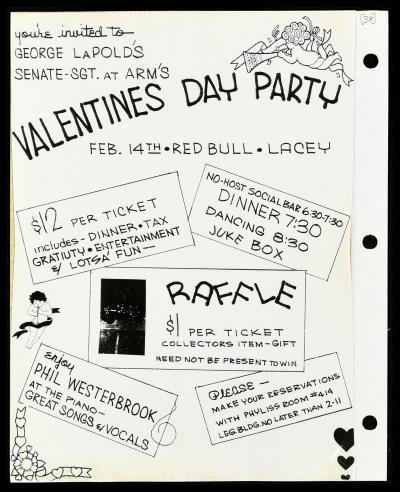 you're invited to
GEORGE LaPOLD'S
SENATE-SGT. AT ARM'S
VALENTINES DAY PARTY
FEB. 14TH • RED BULL • LACEY
$12 PER TICKET
includes - DINNER • TAX
GRATIUTY • ENTERTAINMENT
& LOTSA' FUN —
NO-HOST SOCIAL BAR 6:30-7:30
DINNER 7:30
DANCING 8:30
JUKE BOX
RAFFLE
$1 PER TICKET
COLLECTORS ITEM - GIFT
NEED NOT BE PRESENT TO WIN
enjoy
PHIL WESTERBROOK
AT THE PIANO —
GREAT SONGS & VOCALS
PLEASE —
MAKE YOUR RESERVATIONS
WITH PHYLISS ROOM #414
LEG. BLDG. NO LATER THAN 2-11